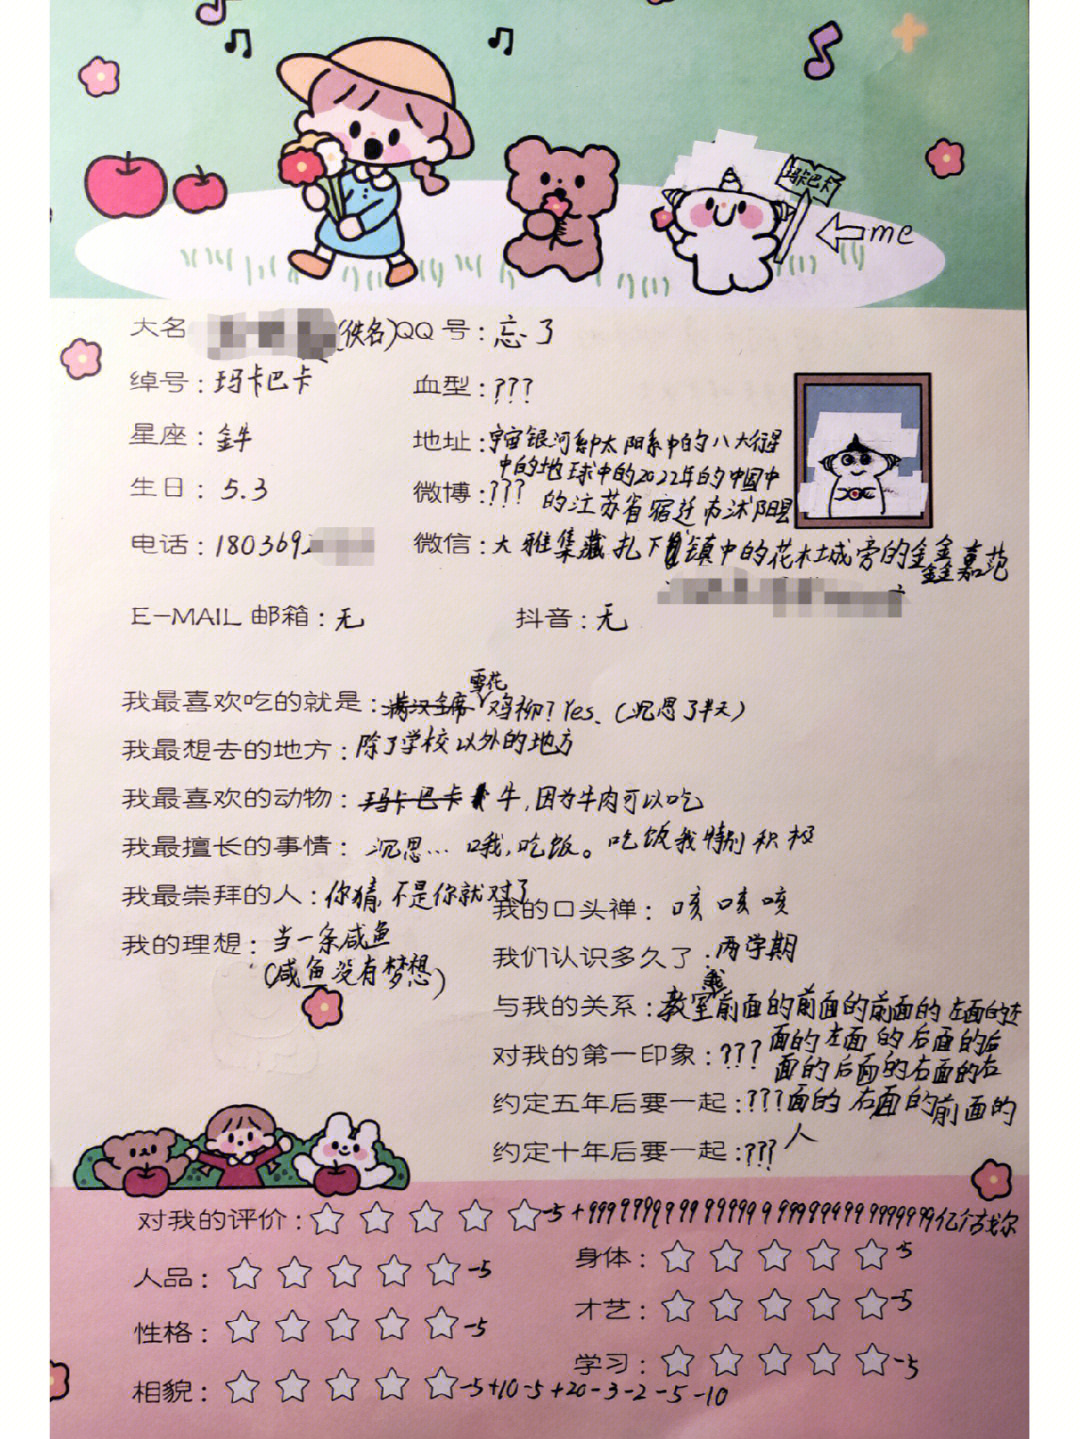 玛卡巴卡
me
大名 (佚名) QQ号：忘了
绰号：玛卡巴卡 血型：???
星座：金牛 地址：宇宙银河系中太阳系中的八大行星
中的地球中的2022年的中国中
生日：5.3 微博：??? 的江苏省宿迁市沭阳县
电话：180369 微信：大雅集藏扎下镇中的花木城旁的金鑫嘉苑
E-MAIL 邮箱：无 抖音：无
雪花
我最喜欢吃的就是：满汉全席 鸡柳？Yes、（沉思了半天）
我最想去的地方：除了学校以外的地方
我最喜欢的动物：玛卡巴卡 牛，因为牛肉可以吃
我最擅长的事情：沉思… 哦，吃饭。吃饭我特别积极
我最崇拜的人：你猜，不是你就对了
我的口头禅：咳咳咳
我的理想：当一条咸鱼
（咸鱼没有梦想）
我们认识多久了：两学期
与我的关系：教室前面的前面的前面的左面的左
面的左面的后面的后
对我的第一印象：???
面的后面的右面的右
约定五年后要一起：??? 面的右面的前面的
人
约定十年后要一起：???
对我的评价：☆☆☆☆☆-5+99999999999999999999999999999999亿个
人品：☆☆☆☆☆-5 身体：☆☆☆☆☆-5
性格：☆☆☆☆☆-5 才艺：☆☆☆☆☆-5
相貌：☆☆☆☆☆-5+10-5+20-3-2-5-10 学习：☆☆☆☆☆-5